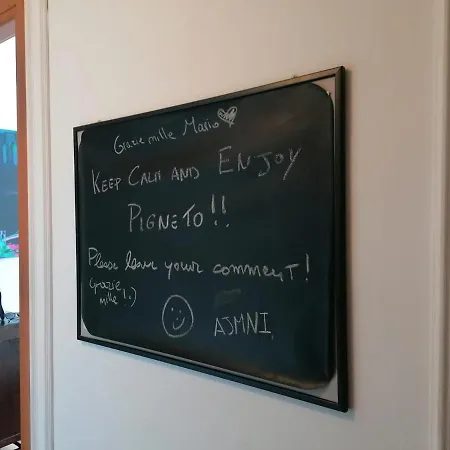 Grazie mille Mario
KEEP CALM AND ENJOY
PIGNETO!!
Please leave your comment!
Grazie
mille!:)
AJMNI